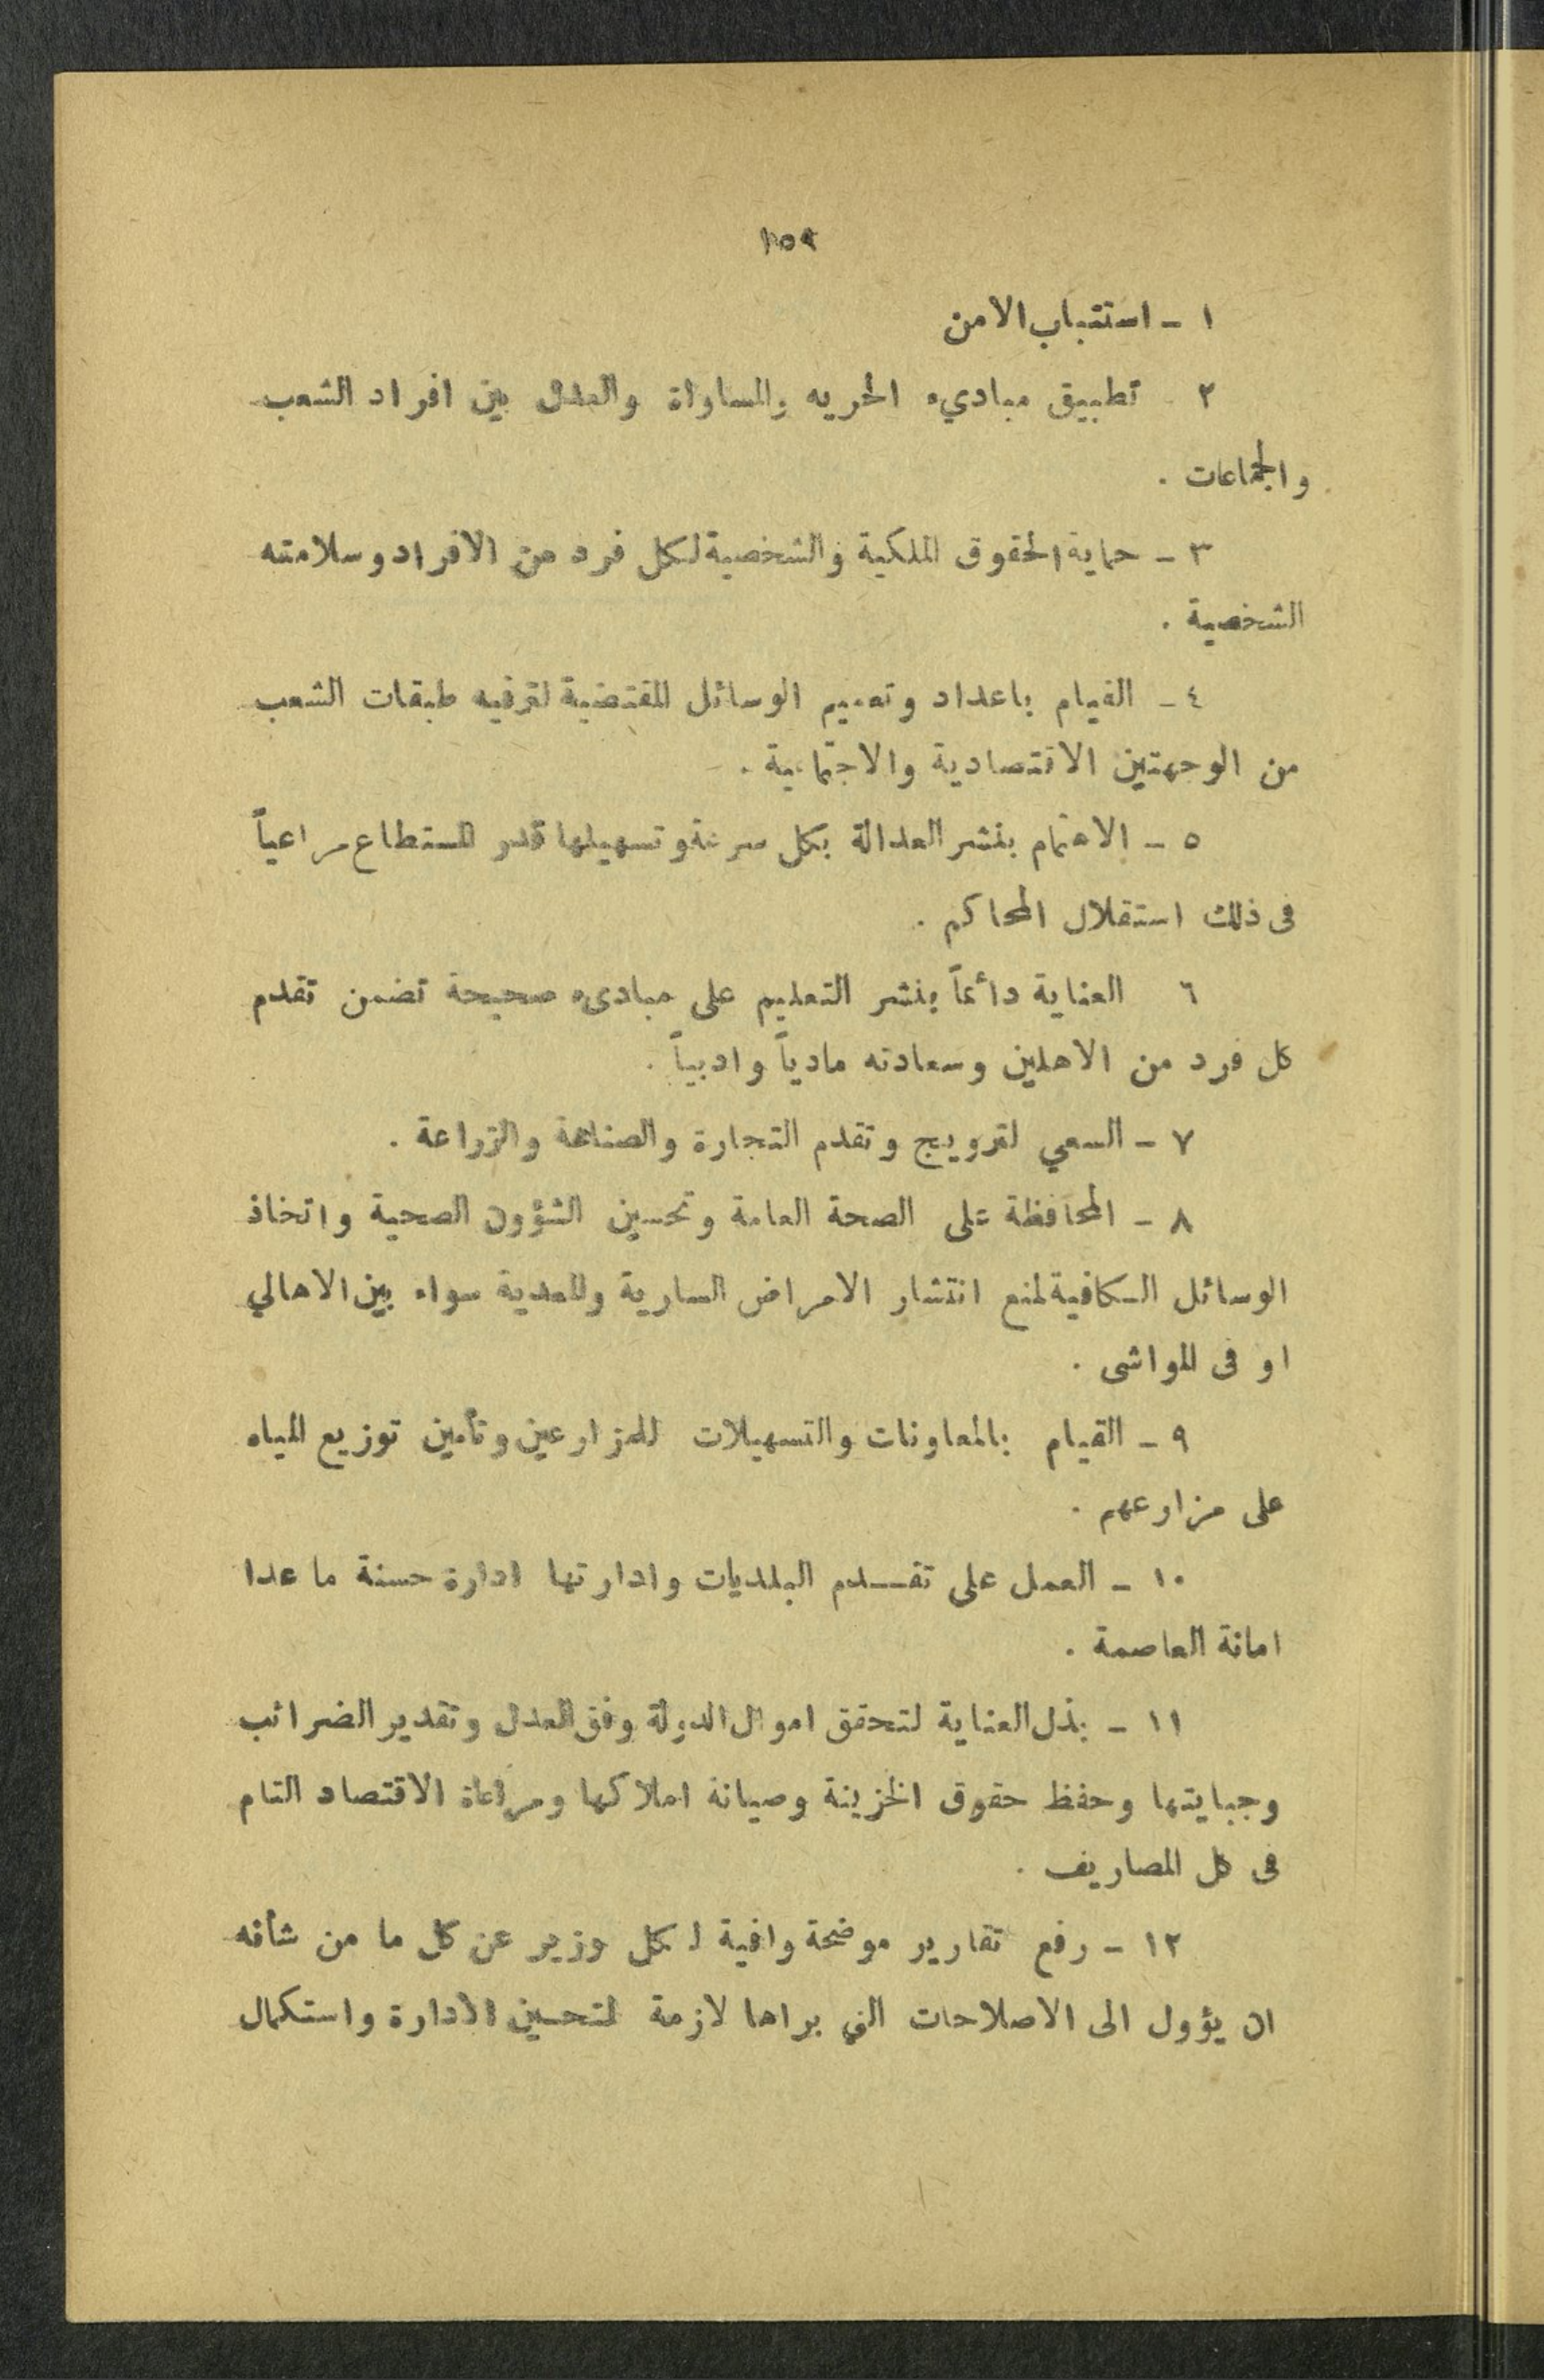 ١٥٩
١ - استتباب الامن
٢ تطبيق مباديء الحريه والمساواة والعدل بين افراد الشعب
والجماعات .
٣ - حماية الحقوق الملكية والشخصية لكل فرد من الافراد وسلامته
الشخصية .
٤ - القيام باعداد وتعميم الوسائل المقتضية لترفيه طبقات الشعب
من الوجهتين الاقتصادية والاجتماعية .
٥ - الاهتمام بنشر العدالة بكل سرعة وتسهيلها قدر المستطاع مراعياً
فى ذلك استقلال المحاكم .
٦ العناية دائماً بنشر التعليم على مبادىء صحيحة تضمن تقدم
كل فرد من الاهلين وسعادته مادياً وادبياً .
٧ - السعي لترويج وتقدم التجارة والصناعة والزراعة .
٨ - المحافظة على الصحة العامة وتحسين الشؤون الصحية واتخاذ
الوسائل الكافية لمنع انتشار الامراض السارية والمعدية سواء بين الاهالي
او فى المواشى .
٩ - القيام بالمعاونات والتسهيلات للمزارعين وتأمين توزيع المياه
على مزارعهم .
١٠ - العمل على تقـــدم البلديات وادارتها ادارة حسنة ما عدا
امانة العاصمة .
١١ - بذل العناية لتحقق اموال الدولة وفق العدل وتقدير الضرائب
وجبايتها وحفظ حقوق الخزينة وصيانة املاكها ومراعاة الاقتصاد التام
فى كل المصاريف .
١٢ - رفع تقارير موضحة وافية لكل وزير عن كل ما من شأنه
ان يؤول الى الاصلاحات التي يراها لازمة لتحسين الادارة واستكمال